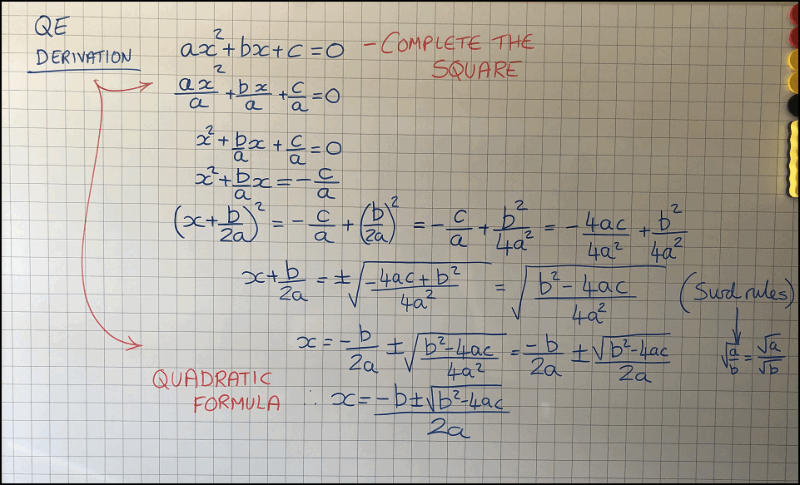 QE
DERIVATION
ax²+bx+c=0 - COMPLETE THE
SQUARE
ax²/a + bx/a + c/a = 0
x² + b/a x + c/a = 0
x² + b/a x = - c/a
(x + b/2a)² = - c/a + (b/2a)² = - c/a + b²/4a² = - 4ac/4a² + b²/4a²
x + b/2a = ±√(-4ac+b²/4a²) = √(b²-4ac/4a²) (Surd rules)
x = -b/2a ± √(b²-4ac/4a²) = -b/2a ± √(b²-4ac)/2a √(a/b) = √a/√b
QUADRATIC
FORMULA ∴ x = -b±√(b²-4ac)/2a